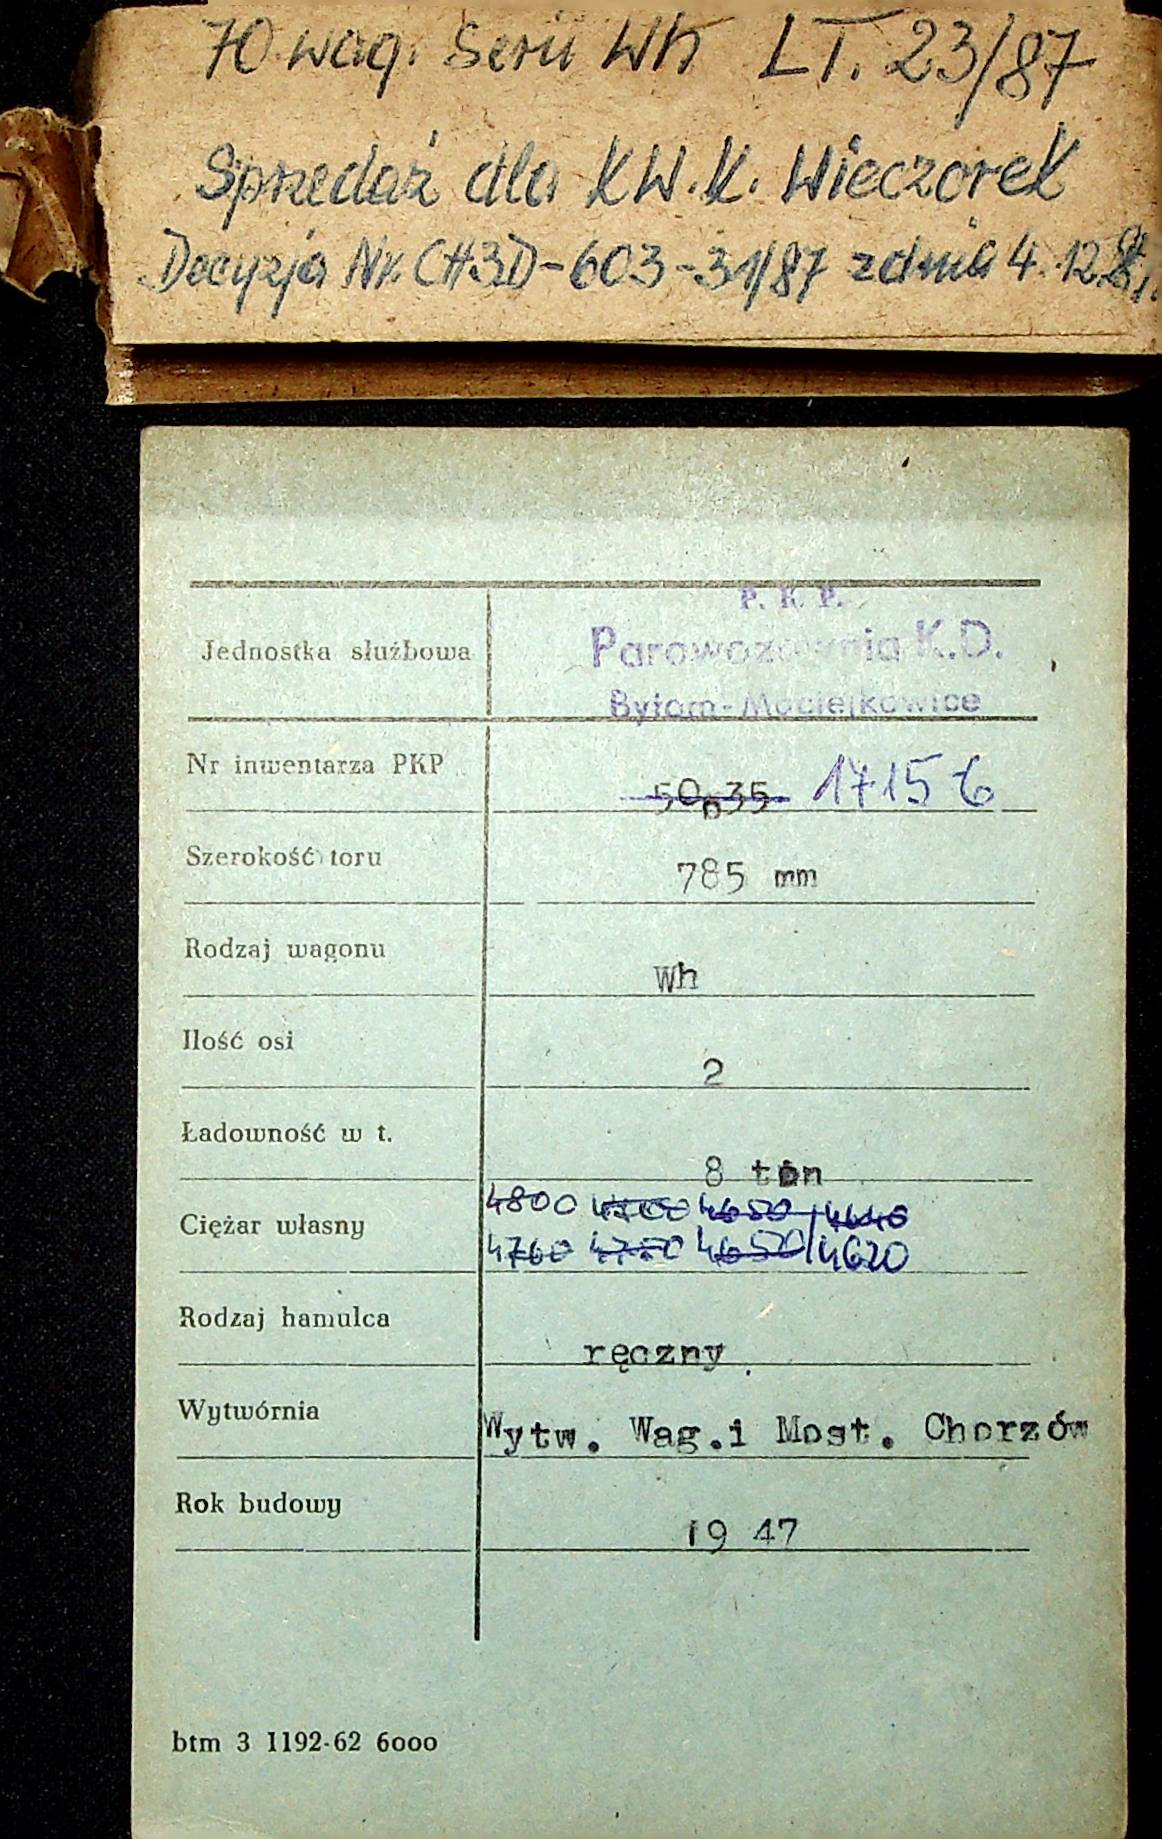 70 wag. Serii Wh LT. 23/87
Sprzedaż dla KW.K. Wieczorek
Decyzja Nr. CH3D-603-31/87 z dnia 4.12.
P. K. P.
Jednostka służbowa Parowozownia K.D.
Bytom-Maciejkowice
Nr inwentarza PKP 17156
Szerokość toru 785 mm
Rodzaj wagonu Wh
Ilość osi 2
Ładowność w t. 8 ton
4800 4650 4640
Ciężar własny
4760 4650 4620
Rodzaj hamulca ręczny
Wytwórnia Wytw. Wag.i Most. Chorzów
Rok budowy 19 47
btm 3 1192-62 6000